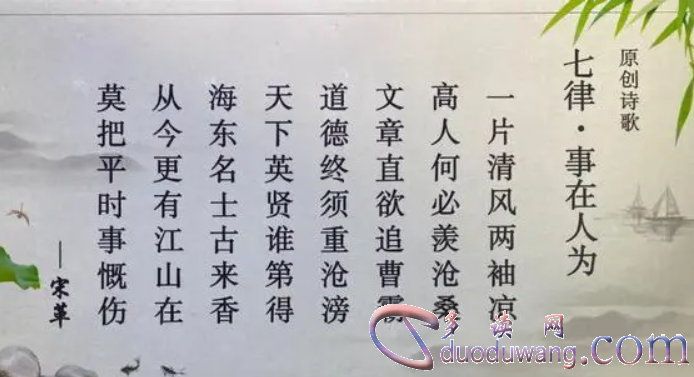 原创诗歌
七律·事在人为
一片清风两袖凉
高人何必羡沧桑
文章直欲追曹
道德终须重沧滂
天下英贤谁第得
海东名士古来香
从今更有江山在
莫把平时事慨伤
——宋革
多读网
duoduwang.com